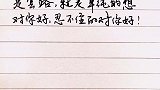 是套路，就是单纯的想
对你好，忍不住的对你好！